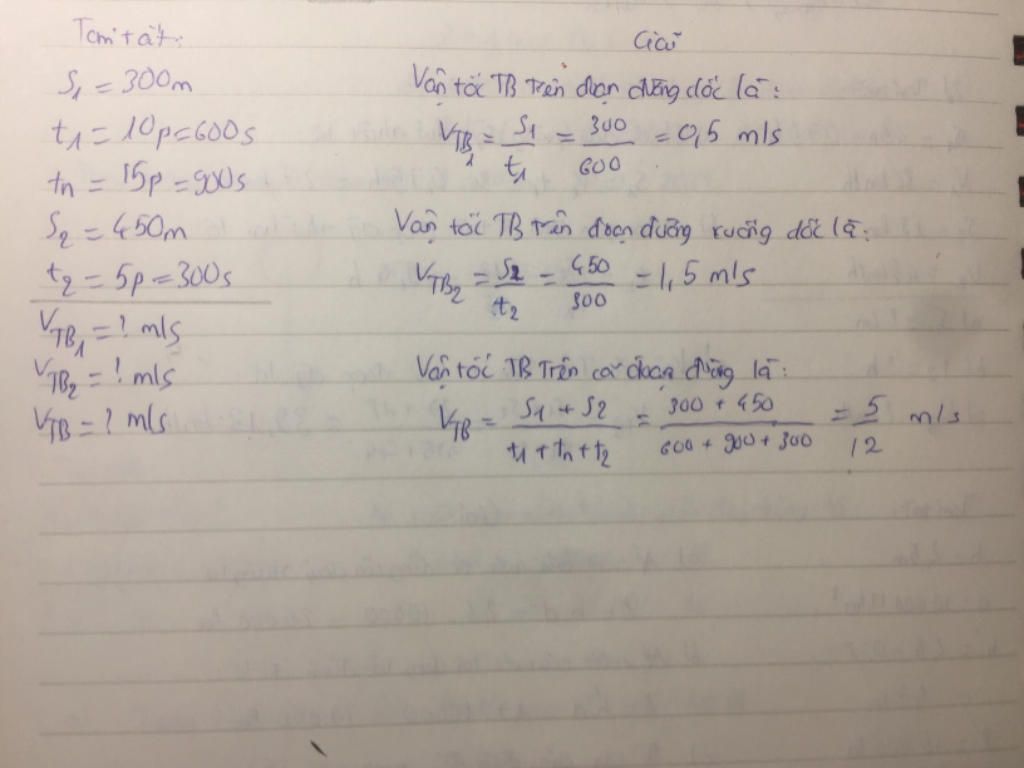 Tóm tắt:
S₁ = 300m
t₁ = 10p = 600s
tn = 15p = 900s
S₂ = 450m
t₂ = 5p = 300s
V_TB₁ = ? m/s
V_TB₂ = ? m/s
V_TB = ? m/s
Giải
Vận tốc TB trên đoạn đường dốc là:
V_TB₁ = S₁/t₁ = 300/600 = 0,5 m/s
Vận tốc TB trên đoạn đường xuống dốc là:
V_TB₂ = S₂/t₂ = 450/300 = 1,5 m/s
Vận tốc TB trên cả đoạn đường là:
V_TB = (S₁ + S₂)/(t₁ + tn + t₂) = (300 + 450)/(600 + 900 + 300) = 5/12 m/s